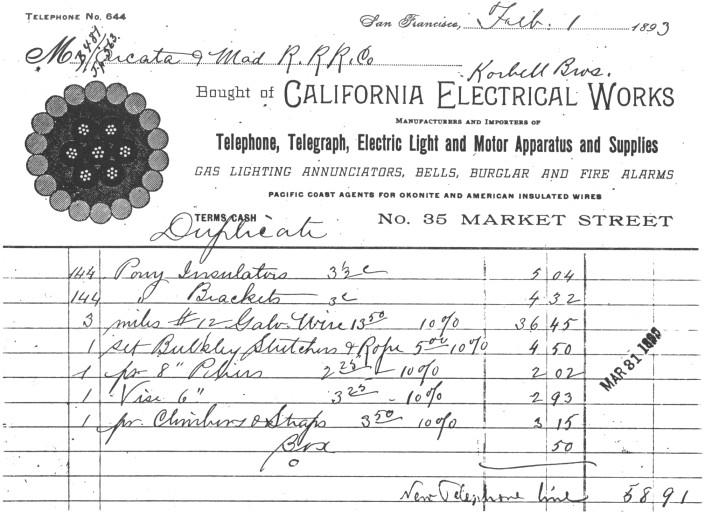 TELEPHONE No. 644
San Francisco, Feb. 1 1893
M Arcata & Mad R. R. R. Co
Korbell Bros.
Bought of CALIFORNIA ELECTRICAL WORKS
MANUFACTURERS AND IMPORTERS OF
Telephone, Telegraph, Electric Light and Motor Apparatus and Supplies
GAS LIGHTING ANNUNCIATORS, BELLS, BURGLAR AND FIRE ALARMS
PACIFIC COAST AGENTS FOR OKONITE AND AMERICAN INSULATED WIRES
TERMS CASH No. 35 MARKET STREET
Duplicate
144 Pony Insulators 3½ c 5 04
144 " Brackets 3c 4 32
3 miles #12 Galv. Wire 13 50 10% 36 45
1 set Bulkley Stretchers & Rope 5 00 10% 4 50
1 pr 8" Pliers 2 25 - 10% 2 02
1 Vise 6" 3 25 - 10% 2 93
1 pr. Climbers & Straps 3 50 10% 3 15
Box 50
MAR 31 1893
New Telephone line 58 91